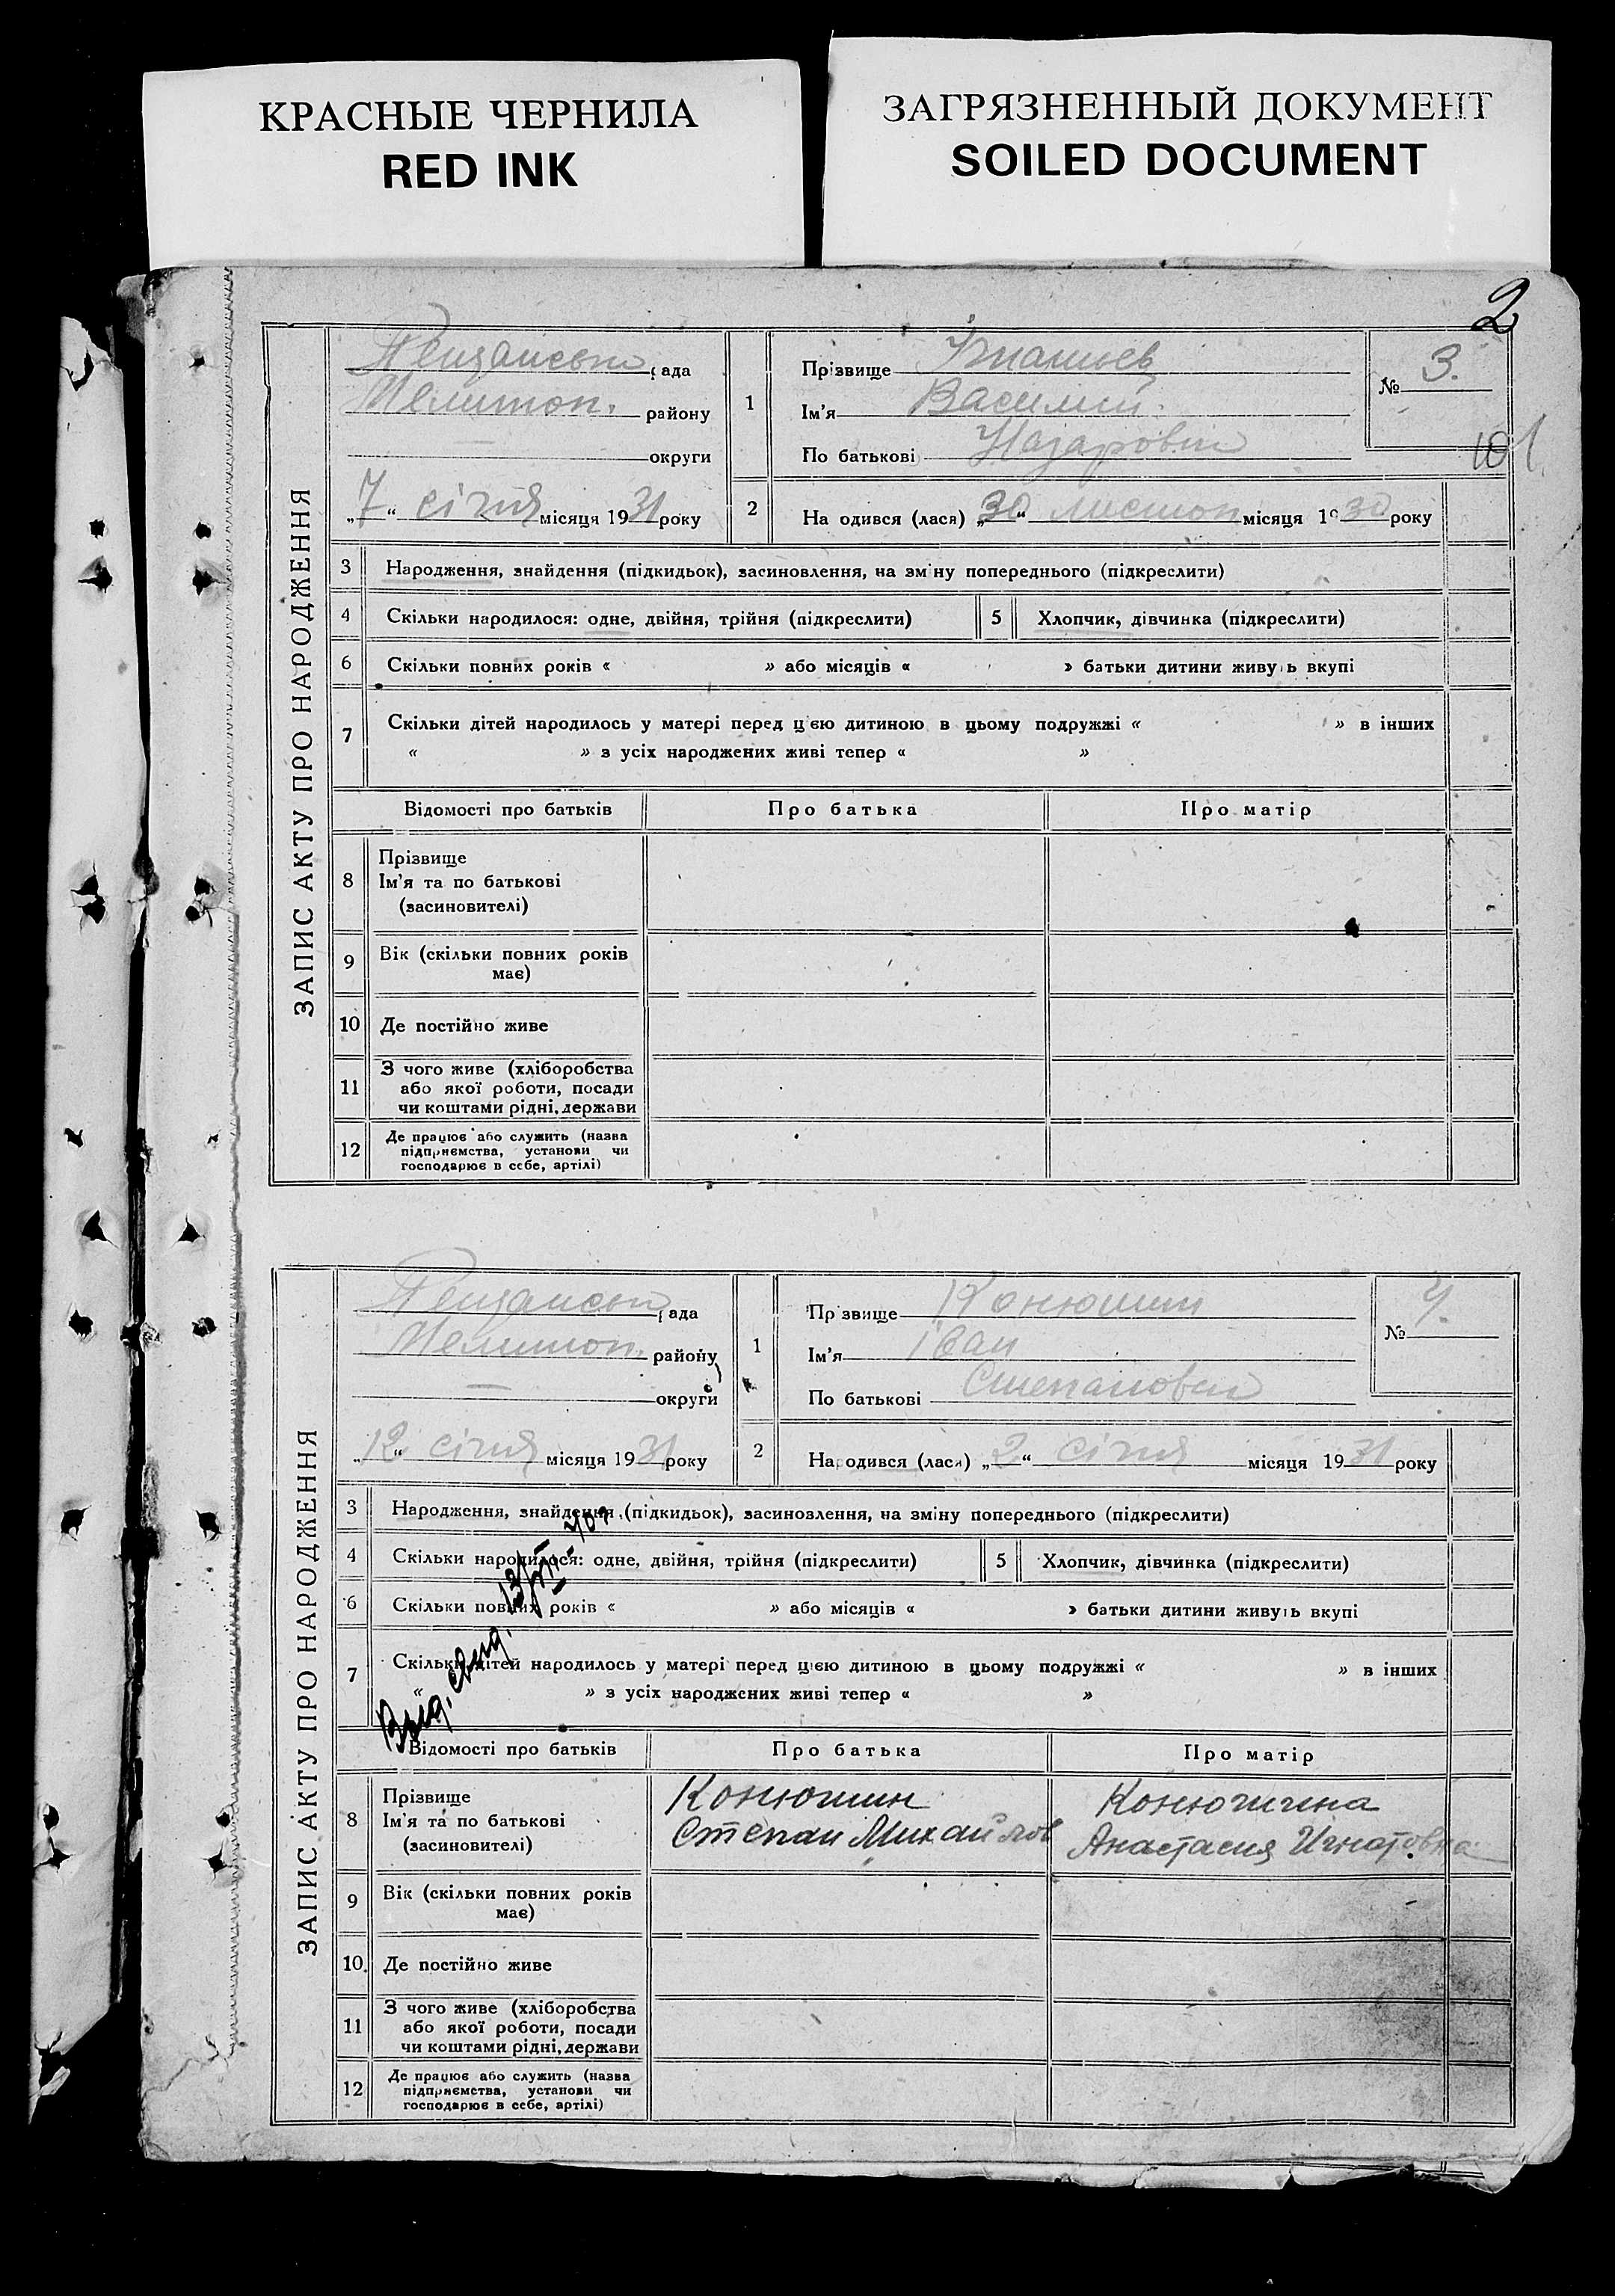 КРАСНЫЕ ЧЕРНИЛА
RED INK
ЗАГРЯЗНЕННЫЙ ДОКУМЕНТ
SOILED DOCUMENT
2
ЗАПИС АКТУ ПРО НАРОДЖЕННЯ
рада
Мелитоп. району
— округи
„7“ січня місяця 1931 року
1
Прізвище
Ім'я Василий
По батькові Назарович
№ 3.
2
Народився (лася) „30“ листоп місяця 1930 року
3 Народження, знайдення (підкидьок), засиновлення, на зміну попереднього (підкреслити)
4 Скільки народилося: одне, двійня, трійня (підкреслити) 5 Хлопчик, дівчинка (підкреслити)
6 Скільки повних років « » або місяців « » батьки дитини живуть вкупі
7 Скільки дітей народилось у матері перед цією дитиною в цьому подружжі « » в інших
« » з усіх народжених живі тепер « »
Відомості про батьків Про батька Про матір
8 Прізвище
Ім'я та по батькові
(засиновителі)
9 Вік (скільки повних років
має)
10 Де постійно живе
11 З чого живе (хліборобства
або якої роботи, посади
чи коштами рідні, держави
12 Де працює або служить (назва
підприємства, установи чи
господарює в себе, артілі)
ЗАПИС АКТУ ПРО НАРОДЖЕННЯ
рада
Мелитоп. району
— округи
„12“ січня місяця 1931 року
1
Прізвище Конюшин
Ім'я Іван
По батькові Степанович
№ 4.
2
Народився (лася) „2“ січня місяця 1931 року
3 Народження, знайдення (підкидьок), засиновлення, на зміну попереднього (підкреслити)
4 Скільки народилося: одне, двійня, трійня (підкреслити) 5 Хлопчик, дівчинка (підкреслити)
6 Скільки повних років « » або місяців « » батьки дитини живуть вкупі
7 Скільки дітей народилось у матері перед цією дитиною в цьому подружжі « » в інших
« » з усіх народжених живі тепер « »
Выд. свид.
Відомості про батьків Про батька Про матір
8 Прізвище
Ім'я та по батькові
(засиновителі)
Конюшин
Степан Михайлов
Конюшина
Анастасия Игнатовна
9 Вік (скільки повних років
має)
10. Де постійно живе
11 З чого живе (хліборобства
або якої роботи, посади
чи коштами рідні, держави
12 Де працює або служить (назва
підприємства, установи чи
господарює в себе, артілі)